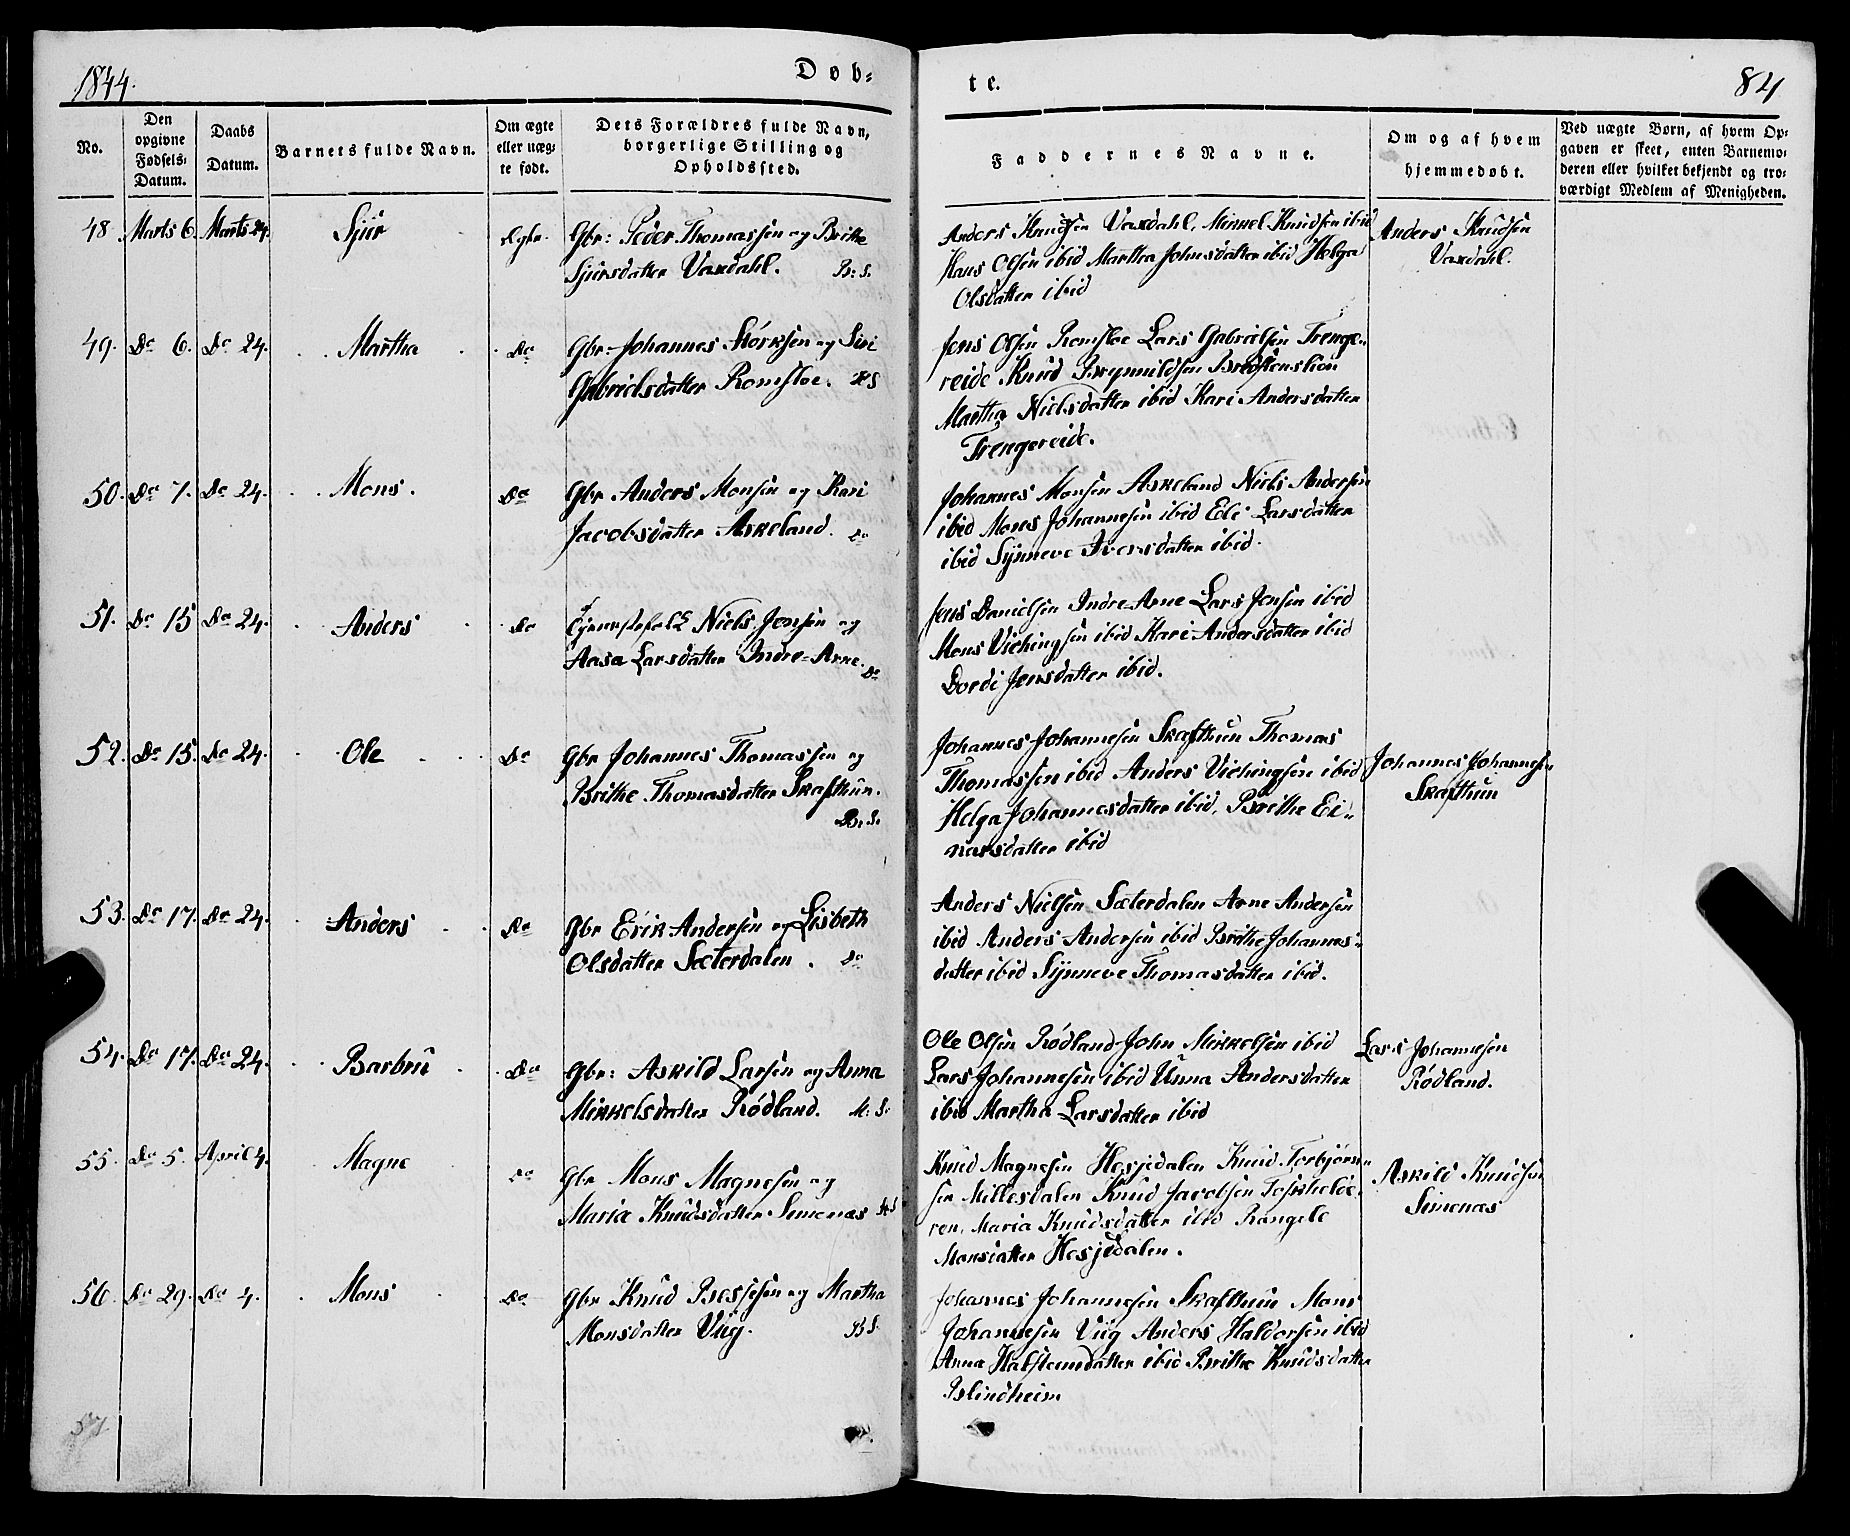 1844.
Døb-
te.
84
No.
Den opgivne Fødsels-Datum.
Daabs Datum.
Barnets fulde Navn.
Om ægte eller uæg-te født.
Dets Forældres fulde Navn, borgerlige Stilling og Opholdssted.
Faddernes Navne.
Om og af hvem hjemmedøbt.
Ved uægte Børn, af hvem Op-gaven er skeet, enten Barnemo-deren eller hvilket bekjendt og tro-værdigt Medlem af Menigheden.
48. Marts 6. Marts 24. Sjur
Gbr: Peder Thomassen og Brithe
Sjursdatter Vaxdahl. B: S.
Anders Knudsen Vaxdahl, Mikkel Knudsen ibid
Hans Olsen ibid Martha Johnsdatter ibid Helga
Olsdatter ibid
Anders Knudsen
Vaxdahl.
49. Do 6. Do 24. Martha Do
Gbr: Johannes Størksen og Siri
Gabrielsdatter Romsloe. H S
Jens Olsen Romsloe Lars Gabrielsen Trenge-
reide Knud Brynnildsen
Martha Nielsdatter ibid Kari Andersdatter
Trengereide.
50. Do 7. Do 24. Mons. Do
Gbr Anders Monsen og Kari
Jacobsdatter Askeland. Do
Johannes Monsen Askeland Niels Andersen
ibid Mons Johannesen ibid Eli Larsdatter
ibid Synneve Iversdatter ibid.
51. Do 15 Do 24. Anders Do
Niels Jensen og
Aasa Larsdatter Indre-Arne. Do
Jens Danielsen Indre-Arne Lars Jensen ibid
Mons Vichingsen ibid Kari Andersdatter ibid
Dordi Jensdatter ibid.
52. Do 15. Do 24. Ole Do
Gbr Johannes Thomassen og
Brithe Thomasdatter Skafthun.
B: S:
Johannes Johannesen Skafthun Thomas
Thomassen ibid Anders Vichingsen ibid
Helga Johannesdatter ibid, Brithe Ei-
narsdatter ibid
Johannes Johannesen
Skafthun
53. Do 17. Do 24. Anders Do
Gbr Erik Andersen og Lisbeth
Olsdatter Sæterdalen. Do
Anders Nielsen Sæterdalen Arne Andersen
ibid Anders Andersen ibid Brithe Johannes-
datter ibid Synneve Thomasdatter ibid.
54. Do 17. Do 24. Barbru Do
Gbr: Askild Larsen og Anna
Mikkelsdatter Rødland. H: S:
Ole Olsen Rødland John Mikkelsen ibid
Lars Johannesen ibid Unna Andersdatter
ibid Martha Larsdatter ibid
Lars Johannesen
Rødland.
55. Do 5. April 4. Magne Do
Gbr Mons Magnesen og
Maria Knudsdatter Simenæs H S
Knud Magnesen Hesjedalen Knud Torbjørn-
sen Millesdalen Knud Jacobsen
ren, Maria Knudsdatter ibid Rangele
Monsdatter Hesjedalen.
Askild Knudsen
Simenæs
56. Do 29. Do 4. Mons Do
Gbr Knud Bessesen og Martha
Monsdatter Viig. B S.
Johannes Johannesen Skafthun Mons
Johannesen Viig Anders Haldorsen ibid
Anna Halsteinsdatter ibid Brithe Knudsdatter
Blindheim
57